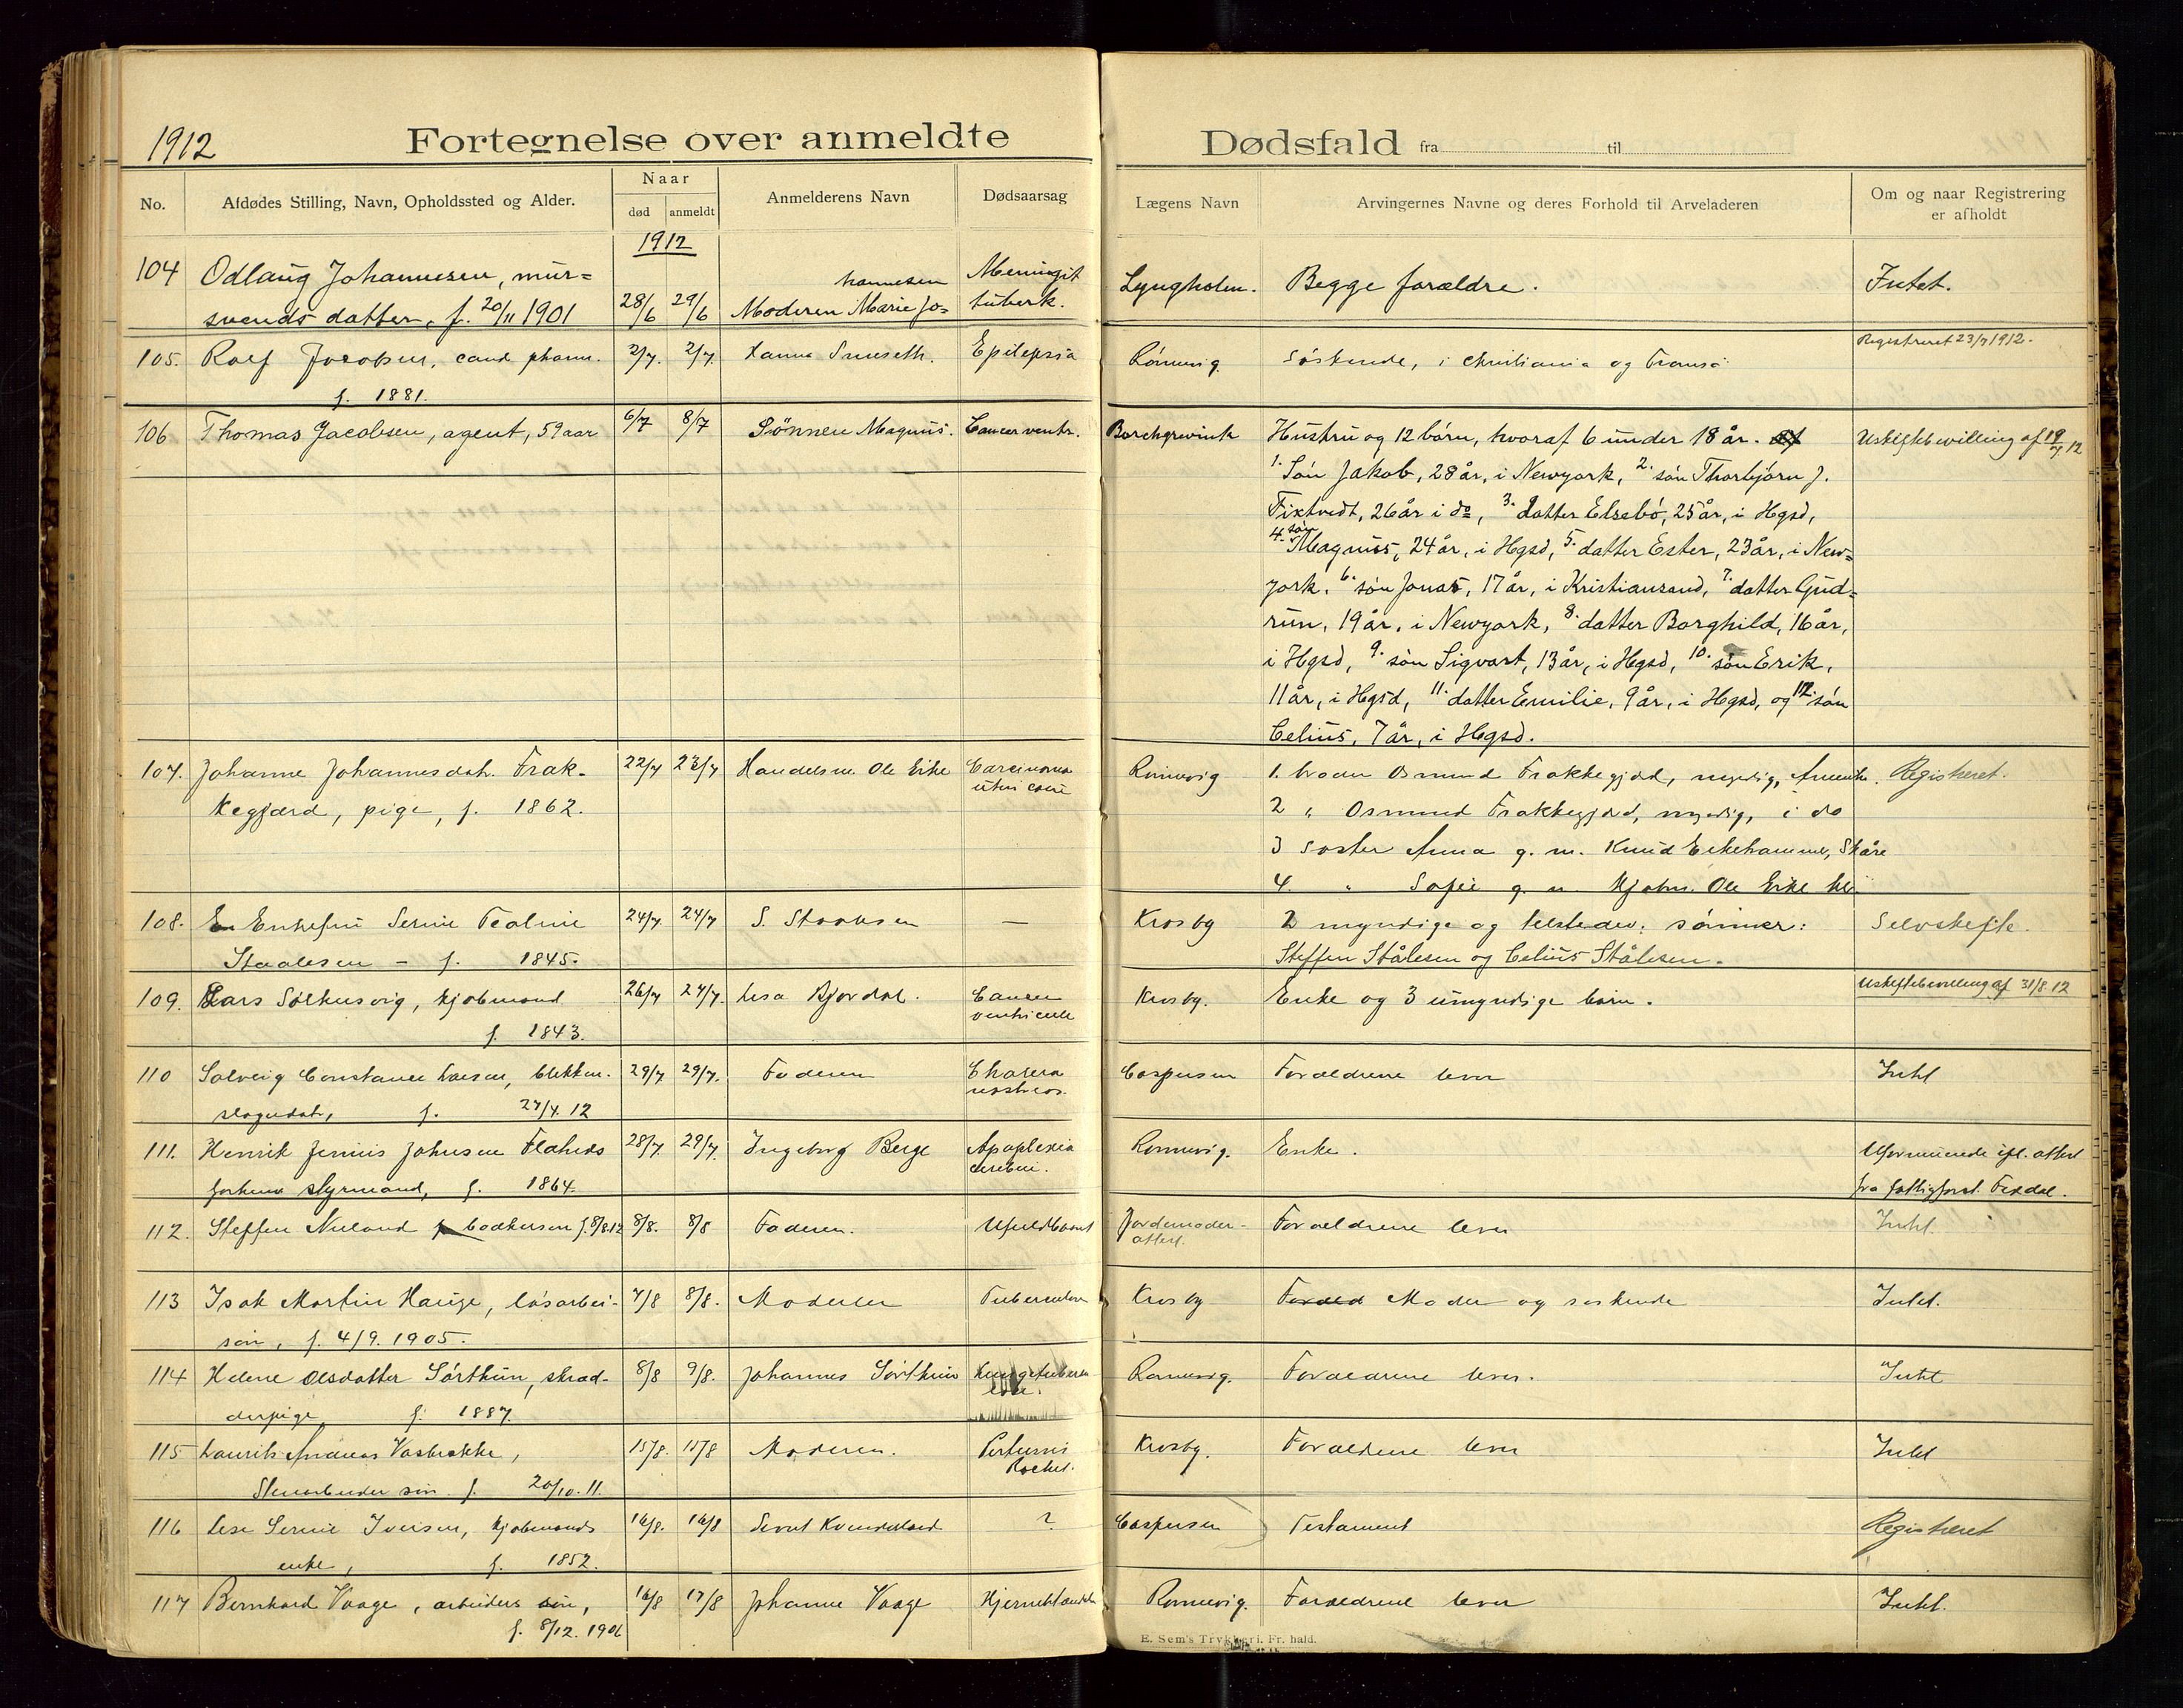 1912
Fortegnelse over anmeldte Dødsfald fra til
No.
Afdødes Stilling, Navn, Opholdssted og Alder.
Naar
død
anmeldt
Anmelderens Navn
Dødsaarsag
Lægens Navn
Arvingernes Navne og deres Forhold til Arveladeren
Om og naar Registrering
er afholdt
1912
104 Odlaug Johannesen, mur=
svends datter, f. 20/11 1901
28/6 29/6
hannesen
Moderen Marie Jo=
Meningit
tuberk.
Lyngholm.
Begge forældre.
Intet.
105. Rolf Jacobsen, cand pharm.
f. 1881.
2/7. 2/7.
Epilepsia
Rönnevig.
Söskende, i Christiania og Tromsö
Registreret 23/7 1912.
106 Thomas Jacobsen, agent, 59 aar
6/7 8/7
Sønnen Magnus.
Cancer ventr.
Borchgrevink
Hustru og 12 börn, hvoraf 6 under 18 år.
1. Sön Jakob, 28 år, i Newyork, 2. sön Thorbjörn J.
Fixtvedt, 26 år i do, 3. datter Elsebö, 25 år, i Hgsd,
4. sön Magnus, 24 år, i Hgsd, 5. datter Ester, 23 år, i New=
york, 6. sön Jonas, 17 år, i Kristiansand, 7. datter Gud=
run, 19 år, i Newyork, 8. datter Borghild, 16 år,
i Hgsd, 9. sön Sigvart, 13 år, i Hgsd, 10. sön Erik,
11 år, i Hgsd, 11. datter Emilie, 9 år, i Hgsd, og 12. sön
Celius, 7 år, i Hgsd.
Uskiftebevilling af 19/7 12
107. Johanne Johannesdat. Frak-
kegjærd, pige, f. 1862.
22/7 23/7
Handelsm. Ole Eike
Carcinoma
uteri
Rönnevig
1. broder Osmund Frakkegjærd, myndig, Amerika.
2 " Osmund Frakkegjærd, myndig, i do
3 søster Anna g. m. Knud Eikehammer, Skåre
4. " Sofie g. m. kjøbm. Ole Eike
Registreret.
108. Enkefru Serine Tealine
Staalesen - f. 1845.
24/7. 24/7.
S. Staalesen
—
Krosby
2 myndige og tilstedev. sönner:
Steffen Stålesen og Celius Stålesen.
Selvskifte.
109. Lars Sölkesvig, kjøbmand
f. 1843.
26/7 27/7.
Lisa Bjordal.
Cancer
ventriculi
Krosby.
Enke og 3 umyndige børn.
Uskiftebevilling af 31/8 12
110 Solveig Constance Larsen, blikken-
slagerdat., f. 27/4. 12
29/7 29/7.
Faderen
Cholera
nostras.
Caspersen
Forældrene lever
Intet
111. Henrik Jenius Johnsen Flatnes
forhenv. styrmand, f. 1864.
28/7. 29/7.
Ingeborg Berge
Apoplexia
cerebri.
Rönnevig.
Enke.
Uformuende ifl. attest
fra fattigforst.
112. Steffen Nuland f. 8/8.12
8/8. 8/8
Faderen.
Ufuldbaaret
Jordemoder-
attest.
Forældrene lever
Intet.
113 Isak Martin Hauge, løsarbei-
søn, f. 4/9. 1905.
7/8 8/8.
Moderen
Tuberculose
Krosby
Moder og søskende
Intet.
114 Helene Olsdatter Sörthun, skræd-
derpige f. 1887.
8/8 9/8.
Johannes Sörthun
Lungetubercu-
lose.
Rönnevig.
Forældrene lever.
Intet
115 Laurits Andreas Vasbrekke,
Stenarbeider søn. f. 20/10. 11.
15/8. 15/8
Moderen.
Pertussis
Rachit.
Krosby.
Forældrene lever
Intet
116 Lise Serine Iversen, kjøbmands
enke, f. 1852.
16/8. 16/8
?
Caspersen
Testament
Registreret
117 Bernhard Vaage, arbeiders søn,
f. 8/12. 1906
16/8 17/8
Johanne Vaage
Rönnevig.
Forældrene lever
Intet.
E. Sem's Trykkeri. Fr. hald.